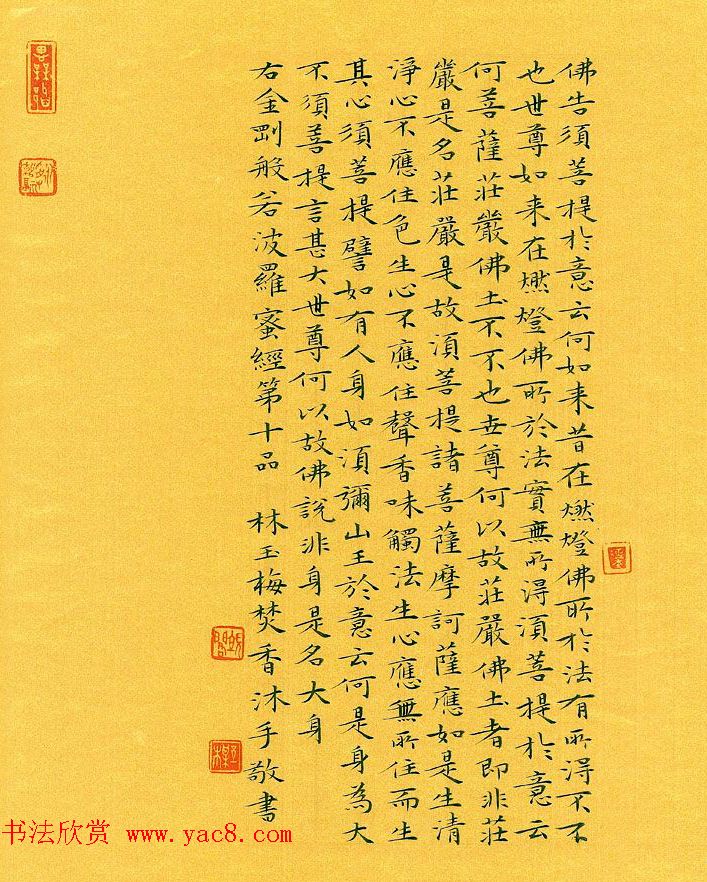 佛告須菩提於意云何如来昔在燃燈佛所於法有所得不不
也世尊如来在燃燈佛所於法實無所得須菩提於意云
何菩薩莊嚴佛土不不也世尊何以故莊嚴佛土者即非莊
嚴是名莊嚴是故須菩提諸菩薩摩訶薩應如是生清
淨心不應住色生心不應住聲香味觸法生心應無所住而生
其心須菩提譬如有人身如須彌山王於意云何是身為大
不須菩提言甚大世尊何以故佛說非身是名大身
右金剛般若波羅蜜經第十品 林玉梅焚香沐手敬書
书法欣赏 www.yac8.com